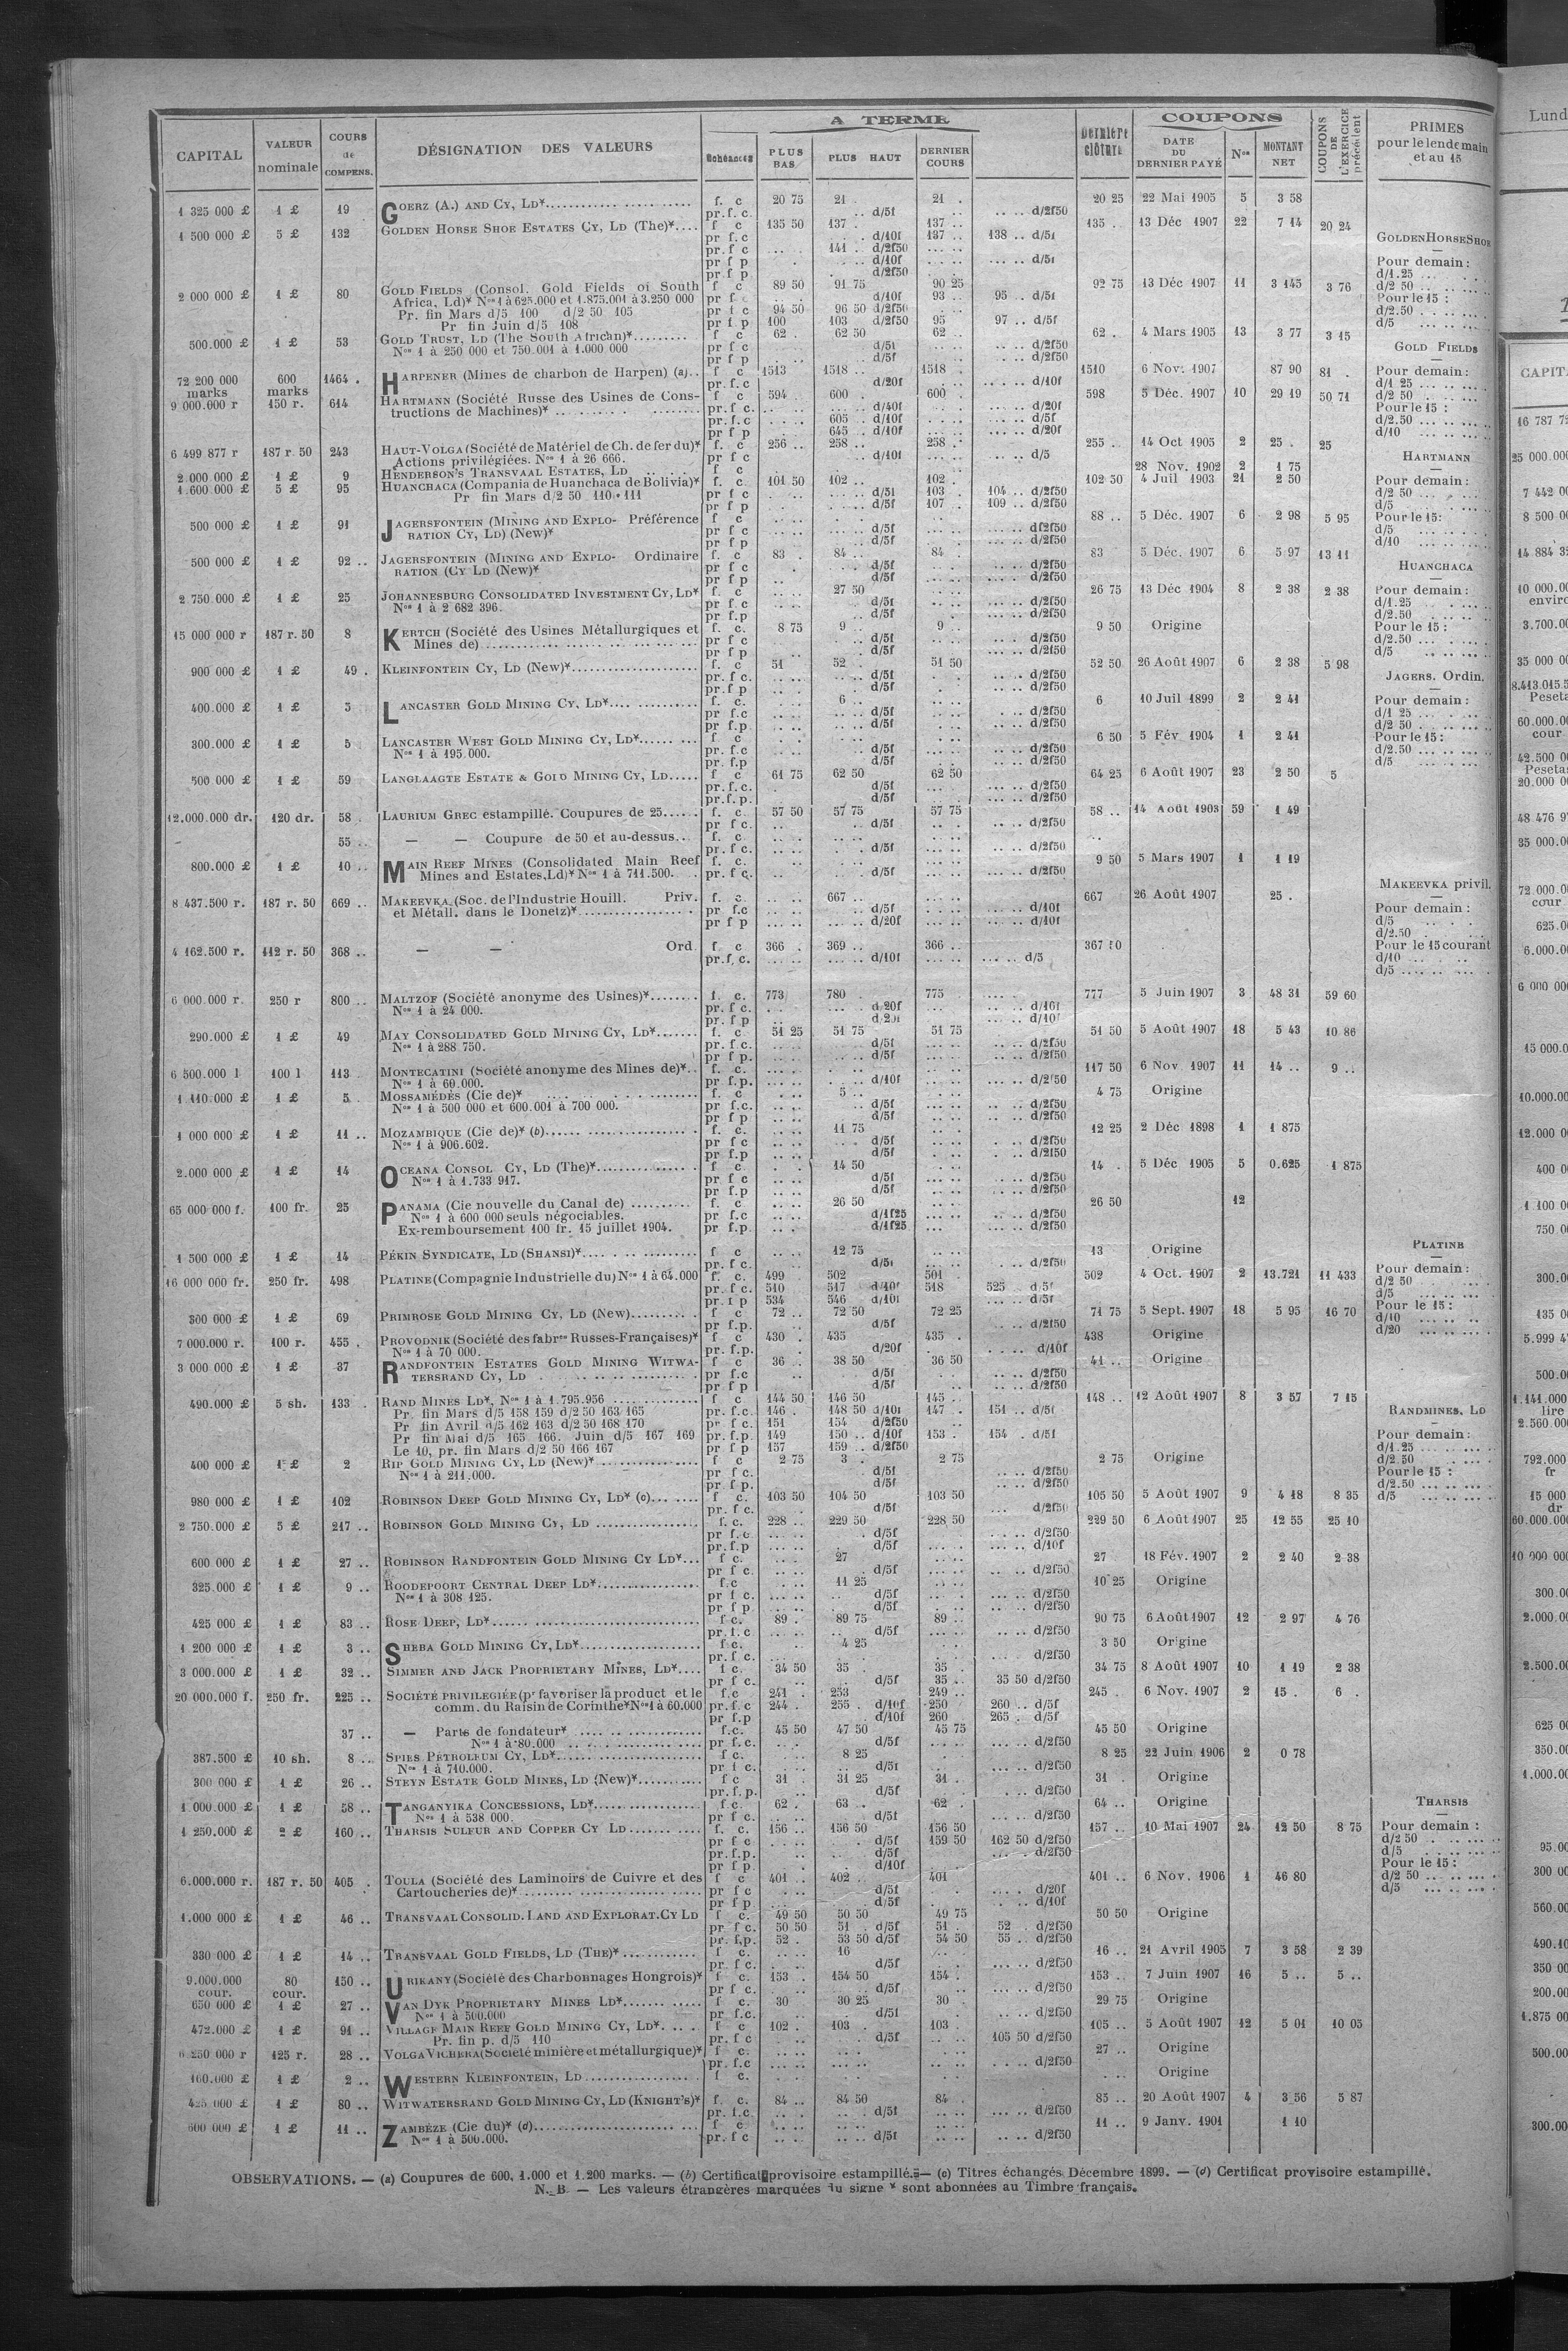 CAPITAL | VALEUR nominale | COURS de COMPENS. | DÉSIGNATION DES VALEURS | A TERME | Echéances | PLUS BAS | PLUS HAUT | DERNIER COURS | Dernière clôture | COUPONS | DATE DU DERNIER PAYÉ | Nos | MONTANT NET | COUPONS DE L'EXERCICE précédent | PRIMES pour le lendemain et au 15
1 325 000 £ 1 £ 19 GOERZ (A.) AND CY, LD* f. c 20 75 21 . 21 . 20 25 22 Mai 1905 5 3 58
pr. f. c. .. d/5f .. .. d/2f50
1 500 000 £ 5 £ 132 GOLDEN HORSE SHOE ESTATES CY, LD (The)* f c 135 50 137 . 137 .. 135 .. 13 Déc 1907 22 7 14 20 24
pr f. c d/10f 137 .. 138 .. d/5f
pr f c 141 .. d/2f50
pr f p d/10f d/5f
pr f p d/2f50
2 000 000 £ 1 £ 80 GOLD FIELDS (Consol. Gold Fields of South f c 89 50 91 75 90 25 92 75 13 Déc 1907 11 3 145 3 76
Africa, Ld)* Nos 1 à 625.000 et 1.875.001 à 3.250 000 pr f c d/10f 93 .. 95 . d/5f
Pr. fin Mars d/5 100 d/2 50 105 pr f c 94 50 96 50 d/2f50
Pr fin Juin d/5 108 pr f p 100 103 d/2f50 95 97 .. d/5f
500.000 £ 1 £ 53 GOLD TRUST, LD (The South African)* f c 62 . 62 50 62 .. 62 . 4 Mars 1905 13 3 77 3 15
Nos 1 à 250 000 et 750.001 à 1.000 000 pr f c d/5f d/2f50
pr f p d/5f d/2f50
72 200 000 marks 600 marks 1464 . HARPENER (Mines de charbon de Harpen) (a) f c 1513 1518 .. 1518 . 1510 6 Nov. 1907 87 90 81 .
pr. f. c d/20f d/10f
9 000.000 r 150 r. 614 HARTMANN (Société Russe des Usines de Cons- f c 594 . 600 . 600 . 598 5 Déc. 1907 10 29 19 50 71
tructions de Machines)* pr. f c. d/40f d/20f
pr. f. c 605 . d/10f d/5f
pr f p 645 . d/10f d/20f
6 499 877 r 187 r. 50 243 HAUT-VOLGA (Société de Matériel de Ch. de fer du)* f. c 256 .. 258 .. 258 .. 255 .. 14 Oct 1905 2 25 . 25
Actions privilégiées. Nos 1 à 26 666. pr f c d/10f d/5
2 000 000 £ 1 £ 9 HENDERSON'S TRANSVAAL ESTATES, LD f c 28 Nov. 1902 2 1 75
1 600 000 £ 5 £ 95 HUANCHACA (Compania de Huanchaca de Bolivia)* f. c. 101 50 102 .. 102 . 102 50 4 Juil 1903 21 2 50
Pr fin Mars d/2 50 110 111 pr f c d/5f 103 . 104 .. d/2f50
pr f p d/5f 107 . 109 .. d/2f50
500 000 £ 1 £ 91 JAGERSFONTEIN (MINING AND EXPLO- Préférence f c 88 .. 5 Déc. 1907 6 2 98 5 95
RATION CY, LD) (New)* pr f c d/5f d/2f50
pr f p d/5f d/2f50
500 000 £ 1 £ 92 .. JAGERSFONTEIN (MINING AND EXPLO- Ordinaire f. c 83 . 84 .. 84 . 83 5 Déc. 1907 6 5 97 13 11
RATION (CY LD (New)* pr f c d/5f d/2f50
pr f p d/5f d/2f50
2 750.000 £ 1 £ 25 JOHANNESBURG CONSOLIDATED INVESTMENT CY, LD* f. c 27 50 26 75 13 Déc 1904 8 2 38 2 38
Nos 1 à 2 682 396. pr f c d/5f d/2f50
pr f.p d/5f d/2f50
15 000 000 r 187 r. 50 8 KERTCH (Société des Usines Métallurgiques et f. c. 8 75 9 .. 9 . 9 50 Origine
Mines de) pr f c d/5f d/2f50
pr f p d/5f d/2f50
900 000 £ 1 £ 49 . KLEINFONTEIN CY, LD (New)* f. c 51 52 . 51 50 52 50 26 Août 1907 6 2 38 5 98
pr. f c. d/5f d/2f50
pr. f p d/5f d/2f50
400.000 £ 1 £ 5 LANCASTER GOLD MINING CY, LD* f. c. 6 .. 6 10 Juil 1899 2 2 41
pr f.c d/5f d/2f50
pr f.p. d/5f d/2f50
300.000 £ 1 £ 5 LANCASTER WEST GOLD MINING CY, LD* f c 6 50 5 Fév 1904 1 2 41
Nos 1 à 195.000. pr. f.c d/5f d/2f50
pr. f.p d/5f d/2f50
500 000 £ 1 £ 59 LANGLAAGTE ESTATE & GOLD MINING CY, LD f c 61 75 62 50 62 50 64 25 6 Août 1907 23 2 50 5
pr. f. c. d/5f d/2f50
pr. f. p. d/5f d/2f50
12.000.000 dr. 120 dr. 58 . LAURIUM GREC estampillé. Coupures de 25 f. c. 57 50 57 75 57 75 58 .. 14 Août 1903 59 1 49
pr f c. d/5f d/2f50
55 .. — — Coupure de 50 et au-dessus f. c.
pr. f c. d/5f d/2f50
800.000 £ 1 £ 10 .. MAIN REEF MINES (Consolidated Main Reef f. c. 9 50 5 Mars 1907 1 1 19
Mines and Estates, Ld)* Nos 1 à 711.500. pr. f c. d/5f d/2f50
8 437.500 r. 187 r. 50 669 .. MAKEEVKA (Soc. de l'Industrie Houill. Priv. f. c. 667 .. 667 26 Août 1907 25 .
et Métall. dans le Donetz)* pr f.c d/5f d/10f
pr f p d/20f d/10f
4 162.500 r. 112 r. 50 368 .. — — Ord. f. c 366 . 369 .. 366 .. 367 50
pr. f. c. d/10f d/5
6 000.000 r. 250 r 800 .. MALTZOF (Société anonyme des Usines)* f. c. 773 780 . 775 777 5 Juin 1907 3 48 31 59 60
Nos 1 à 24 000. pr. f c. d/20f d/10f
pr. f p d/20f d/10f
290.000 £ 1 £ 49 MAY CONSOLIDATED GOLD MINING CY, LD* f. c 51 25 51 75 51 75 51 50 5 Août 1907 18 5 43 10 86
Nos 1 à 288 750. pr. f c. d/5f d/2f50
pr f p. d/5f d/2f50
6 500.000 l 100 l 113 MONTECATINI (Société anonyme des Mines de)* f. c. 117 50 6 Nov 1907 11 14 .. 9 ..
Nos 1 à 60.000. pr f.p. d/10f d/2f50
1 110.000 £ 1 £ 5 MOSSAMÉDÈS (Cie de)* f c 5 .. 4 75 Origine
Nos 1 à 500 000 et 600.001 à 700 000. pr f.c. d/5f d/2f50
pr f p d/5f d/2f50
1 000 000 £ 1 £ 11 .. MOZAMBIQUE (Cie de)* (b) f. c. 11 75 12 25 2 Déc 1898 1 1 875
Nos 1 à 906.602. pr f c d/5f d/2f50
pr f.p d/5f d/2f50
2.000 000 £ 1 £ 14 OCEANA CONSOL CY, LD (The)* f c 14 50 14 . 5 Déc 1905 5 0.625 1 875
Nos 1 à 1.733 917. pr f c d/5f d/2f50
pr f.p d/5f d/2f50
65 000 000 f. 100 fr. 25 PANAMA (Cie nouvelle du Canal de) f. c 26 50 26 50 12
Nos 1 à 600 000 seuls négociables. pr f.c d/1f25 d/2f50
Ex-remboursement 100 fr. 15 juillet 1904. pr f.p. d/1f25 d/2f50
1 500 000 £ 1 £ 14 PÉKIN SYNDICATE, LD (SHANSI)* f c 12 75 13 Origine
pr f c. d/5f d/2f50
16 000 000 fr. 250 fr. 498 PLATINE (Compagnie Industrielle du) Nos 1 à 64.000 f. c. 499 502 501 . 502 4 Oct. 1907 2 13.721 11 433
pr. f c. 510 517 d/10f 518 525 d/5f
pr. f p 534 546 d/10f d/5f
300 000 £ 1 £ 69 PRIMROSE GOLD MINING CY, LD (New) f c 72 .. 72 50 72 25 71 75 5 Sept. 1907 18 5 95 16 70
pr f.p. d/5f d/2f50
7 000.000 r. 100 r. 455 . PROVODNIK (Société des fabres Russes-Françaises)* f c 430 . 435 435 . 438 Origine
Nos 1 à 70 000. pr. f.p. d/20f d/10f
3 000 000 £ 1 £ 37 RANDFONTEIN ESTATES GOLD MINING WITWA- f c 36 .. 38 50 36 50 41 .. Origine
TERSRAND CY, LD pr f.c d/5f d/2f50
pr f p d/5f d/2f50
490.000 £ 5 sh. 133 . RAND MINES LD*, Nos 1 à 1.795.956 f c 144 50 146 50 145 .. 148 .. 12 Août 1907 8 3 57 7 15
Pr fin Mars d/5 158 159 d/2 50 163 165 pr. f.c. 146 . 148 50 d/10f 147 . 151 .. d/5f
Pr fin Avril d/5 162 163 d/2 50 168 170 pr f c. 151 154 d/2f50
Pr fin Mai d/5 165 166. Juin d/5 167 169 pr. f.p. 149 150 .. d/10f 153 . 154 . d/5f
Le 10, pr. fin Mars d/2 50 166 167 pr f p 157 159 .. d/2f50
400 000 £ 1 £ 2 RIP GOLD MINING CY, LD (New)* f c 2 75 3 . 2 75 2 75 Origine
Nos 1 à 211.000. pr f c. d/5f d/2f50
pr f p. d/5f d/2f50
980 000 £ 1 £ 102 ROBINSON DEEP GOLD MINING CY, LD* (c) f c. 103 50 104 50 103 50 105 50 5 Août 1907 9 4 18 8 35
pr. f c. d/5f d/2f50
2 750.000 £ 5 £ 217 .. ROBINSON GOLD MINING CY, LD f. c. 228 .. 229 50 228 50 229 50 6 Août 1907 25 12 55 25 10
pr f.c. d/5f d/2f50
pr. f.p d/5f d/10f
600 000 £ 1 £ 27 .. ROBINSON RANDFONTEIN GOLD MINING CY LD* f c. 27 27 18 Fév. 1907 2 2 40 2 38
pr f c. d/5f d/2f50
325.000 £ 1 £ 9 .. ROODEPOORT CENTRAL DEEP LD* f.c 11 25 10 25 Origine
Nos 1 à 308 125. pr f c. d/5f d/2f50
pr f p d/5f d/2f50
425 000 £ 1 £ 83 .. ROSE DEEP, LD* f c. 89 . 89 75 89 .. 90 75 6 Août 1907 12 2 97 4 76
pr. f. c d/5f d/2f50
1 200 000 £ 1 £ 3 .. SHEBA GOLD MINING CY, LD* f c. 4 25 3 50 Origine
pr. f c. d/2f50
3 000.000 £ 1 £ 32 .. SIMMER AND JACK PROPRIETARY MINES, LD* f c. 34 50 35 . 35 . 34 75 8 Août 1907 10 1 19 2 38
pr f c. d/5f 35 .. 35 50 d/2f50
20 000.000 f. 250 fr. 225 .. SOCIÉTÉ PRIVILEGIÉE (pr favoriser la product et le f.c 241 . 253 249 .. 245 . 6 Nov. 1907 2 15 . 6 .
comm. du Raisin de Corinthe* Nos 1 à 60.000 pr. f c 244 . 255 . d/10f 250 260 .. d/5f
pr f.p d/10f 260 265 . d/5f
37 .. — Parts de fondateur* f.c. 45 50 47 50 45 75 45 50 Origine
Nos 1 à 80.000 pr f.c. d/5f d/2f50
387.500 £ 10 sh. 8 .. SPIES PÉTROLEUM CY, LD* f c. 8 25 8 25 22 Juin 1906 2 0 78
Nos 1 à 710.000. pr f c. d/5f d/2f50
300 000 £ 1 £ 26 .. STEYN ESTATE GOLD MINES, LD (New)* f c 31 . 31 25 31 . 31 . Origine
pr. f. p. d/5f d/2f50
1.000.000 £ 1 £ 58 .. TANGANYIKA CONCESSIONS, LD* f c. 62 . 63 . 62 . 64 .. Origine
Nos 1 à 538 000. pr f c. d/5f d/2f50
1 250.000 £ 2 £ 160 .. THARSIS SULFUR AND COPPER CY LD f. c. 156 .. 156 50 156 50 157 .. 10 Mai 1907 24 12 50 8 75
pr f c d/5f 159 50 162 50 d/2f50
pr. f.p. d/5f d/2f50
pr f p. d/10f
6.000.000 r. 187 r. 50 405 . TOULA (Société des Laminoirs de Cuivre et des f c 401 .. 402 .. 401 401 .. 6 Nov. 1906 1 46 80
Cartoucheries de)* pr f c d/5f d/20f
pr f p d/5f d/10f
1.000 000 £ 1 £ 46 .. TRANSVAAL CONSOLID. LAND AND EXPLORAT. CY LD f c. 49 50 50 50 49 75 50 50 Origine
pr f c. 50 50 51 . d/5f 51 . 52 . d/2f50
pr. f.p. 52 . 53 50 d/5f 54 50 55 .. d/2f50
330 000 £ 1 £ 14 .. TRANSVAAL GOLD FIELDS, LD (THE)* f c. 16 16 .. 21 Avril 1905 7 3 58 2 39
pr. f c. d/5f d/2f50
9.000.000 cour. 80 cour. 150 .. URIKANY (Société des Charbonnages Hongrois)* f c. 153 .. 154 50 154 . 153 .. 7 Juin 1907 16 5 .. 5 ..
pr f c. d/5f d/2f50
650 000 £ 1 £ 27 .. VAN DYK PROPRIETARY MINES LD* f c. 30 30 25 30 . 29 75 Origine
Nos 1 à 500.000 pr f.c. d/5f d/2f50
472.000 £ 1 £ 91 .. VILLAGE MAIN REEF GOLD MINING CY, LD* f c 102 . 103 . 103 . 105 .. 5 Août 1907 12 5 01 10 05
Pr. fin p. d/5 110 pr. f c d/5f 105 50 d/2f50
6 250 000 r 125 r. 28 .. VOLGA VICHERA (Société minière et métallurgique)* f c. 27 .. Origine
pr. f.c d/2f50
160.000 £ 1 £ 2 .. WESTERN KLEINFONTEIN, LD f c. Origine
425 000 £ 1 £ 80 .. WITWATERSRAND GOLD MINING CY, LD (KNIGHT'S)* f c. 84 .. 84 50 84 . 85 .. 20 Août 1907 4 3 56 5 87
pr. f.c. d/5f d/2f50
600 000 £ 1 £ 11 .. ZAMBÈZE (Cie du)* (d) f c 11 .. 9 Janv. 1901 1 10
Nos 1 à 500.000. pr. f c d/5f d/2f50
GOLDEN HORSE SHOE
Pour demain :
d/1.25
d/2 50
Pour le 15 :
d/2.50
d/5
GOLD FIELDS
Pour demain :
d/1 25
d/2 50
Pour le 15 :
d/2.50
d/10
HARTMANN
Pour demain :
d/2 50
d/5
Pour le 15 :
d/5
d/10
HUANCHACA
Pour demain :
d/1.25
d/2.50
Pour le 15 :
d/2.50
d/5
JAGERS. Ordin.
Pour demain :
d/1 25
d/2 50
Pour le 15 :
d/2.50
d/5
MAKEEVKA privil.
Pour demain :
d/5
d/2.50
Pour le 15 courant
d/10
d/5
PLATINE
Pour demain :
d/2 50
d/5
Pour le 15 :
d/10
d/20
RANDMINES, LD
Pour demain :
d/1.25
d/2.50
Pour le 15 :
d/2.50
d/5
THARSIS
Pour demain :
d/2 50
d/5
Pour le 15 :
d/2 50
d/5
OBSERVATIONS. — (a) Coupures de 600, 1.000 et 1.200 marks. — (b) Certificat provisoire estampillé. — (c) Titres échangés Décembre 1899. — (d) Certificat provisoire estampillé.
N. B. — Les valeurs étrangères marquées du signe * sont abonnées au Timbre français.
Lund
CAPITA
16 787 7
25 000.00
7 442 0
8 500 0
14 884 3
10 000.0
enviro
3.700.0
35 000 0
8.413.015 5
Peseta
60.000.0
cour
42.500 0
Pesetas
20.000 0
48 476 9
35 000.0
72.000.0
cour.
625.0
6.000.0
6 000 00
15 000.0
10.000.0
12.000 0
400 0
1 100 0
750 0
300.0
135 0
5.999 4
500.0
1.141.000
lire
2.560.00
792.000
fr
15 000
dr
60.000.00
10 000 000
300.0
2.000.0
2.500.0
625 0
350.0
1.000.0
95.0
300 0
560 0
490.1
350 00
200.00
1.875 00
500.00
300.00